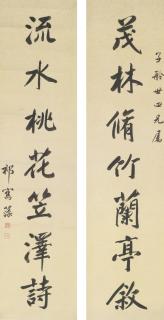 子舲世四兄屬
茂林脩竹蘭亭敘
流水桃花笠澤詩
祁寯藻